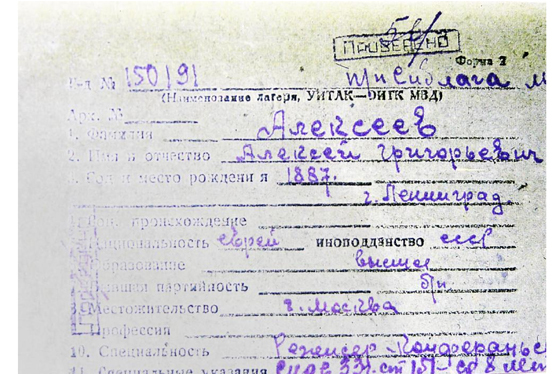 ПРОВЕРЕНО
Форма 2
150191
(Наименование лагеря, УИТЛК—ОИТК МВД)
Арх. №
1. Фамилия Алексеев
2. Имя и отчество Алексей Григорьевич
Год и место рождения 1887.
г. Ленинград
происхождение
национальность еврей иноподданство ссср
образование высшее
партийность б/п
Местожительство г. Москва
Профессия
10. Специальность Режиссер
11. Специальные указания